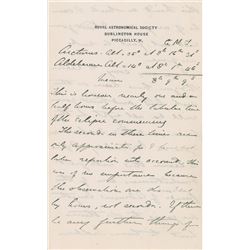 ROYAL ASTRONOMICAL SOCIETY
BURLINGTON HOUSE
PICCADILLY, W.
G.M.T.
Arcturus Alt. 25°
Aldebaran Alt. 14° at 8h
Mean 8h 9m 9s
This is however nearly one and a
half hours before the tabular time
of the eclipse commencing
The seconds in these times are
only approximate for I have not
taken refraction into account, this
was of no importance because
the observations are
by hours, not seconds. If there
be any further things of